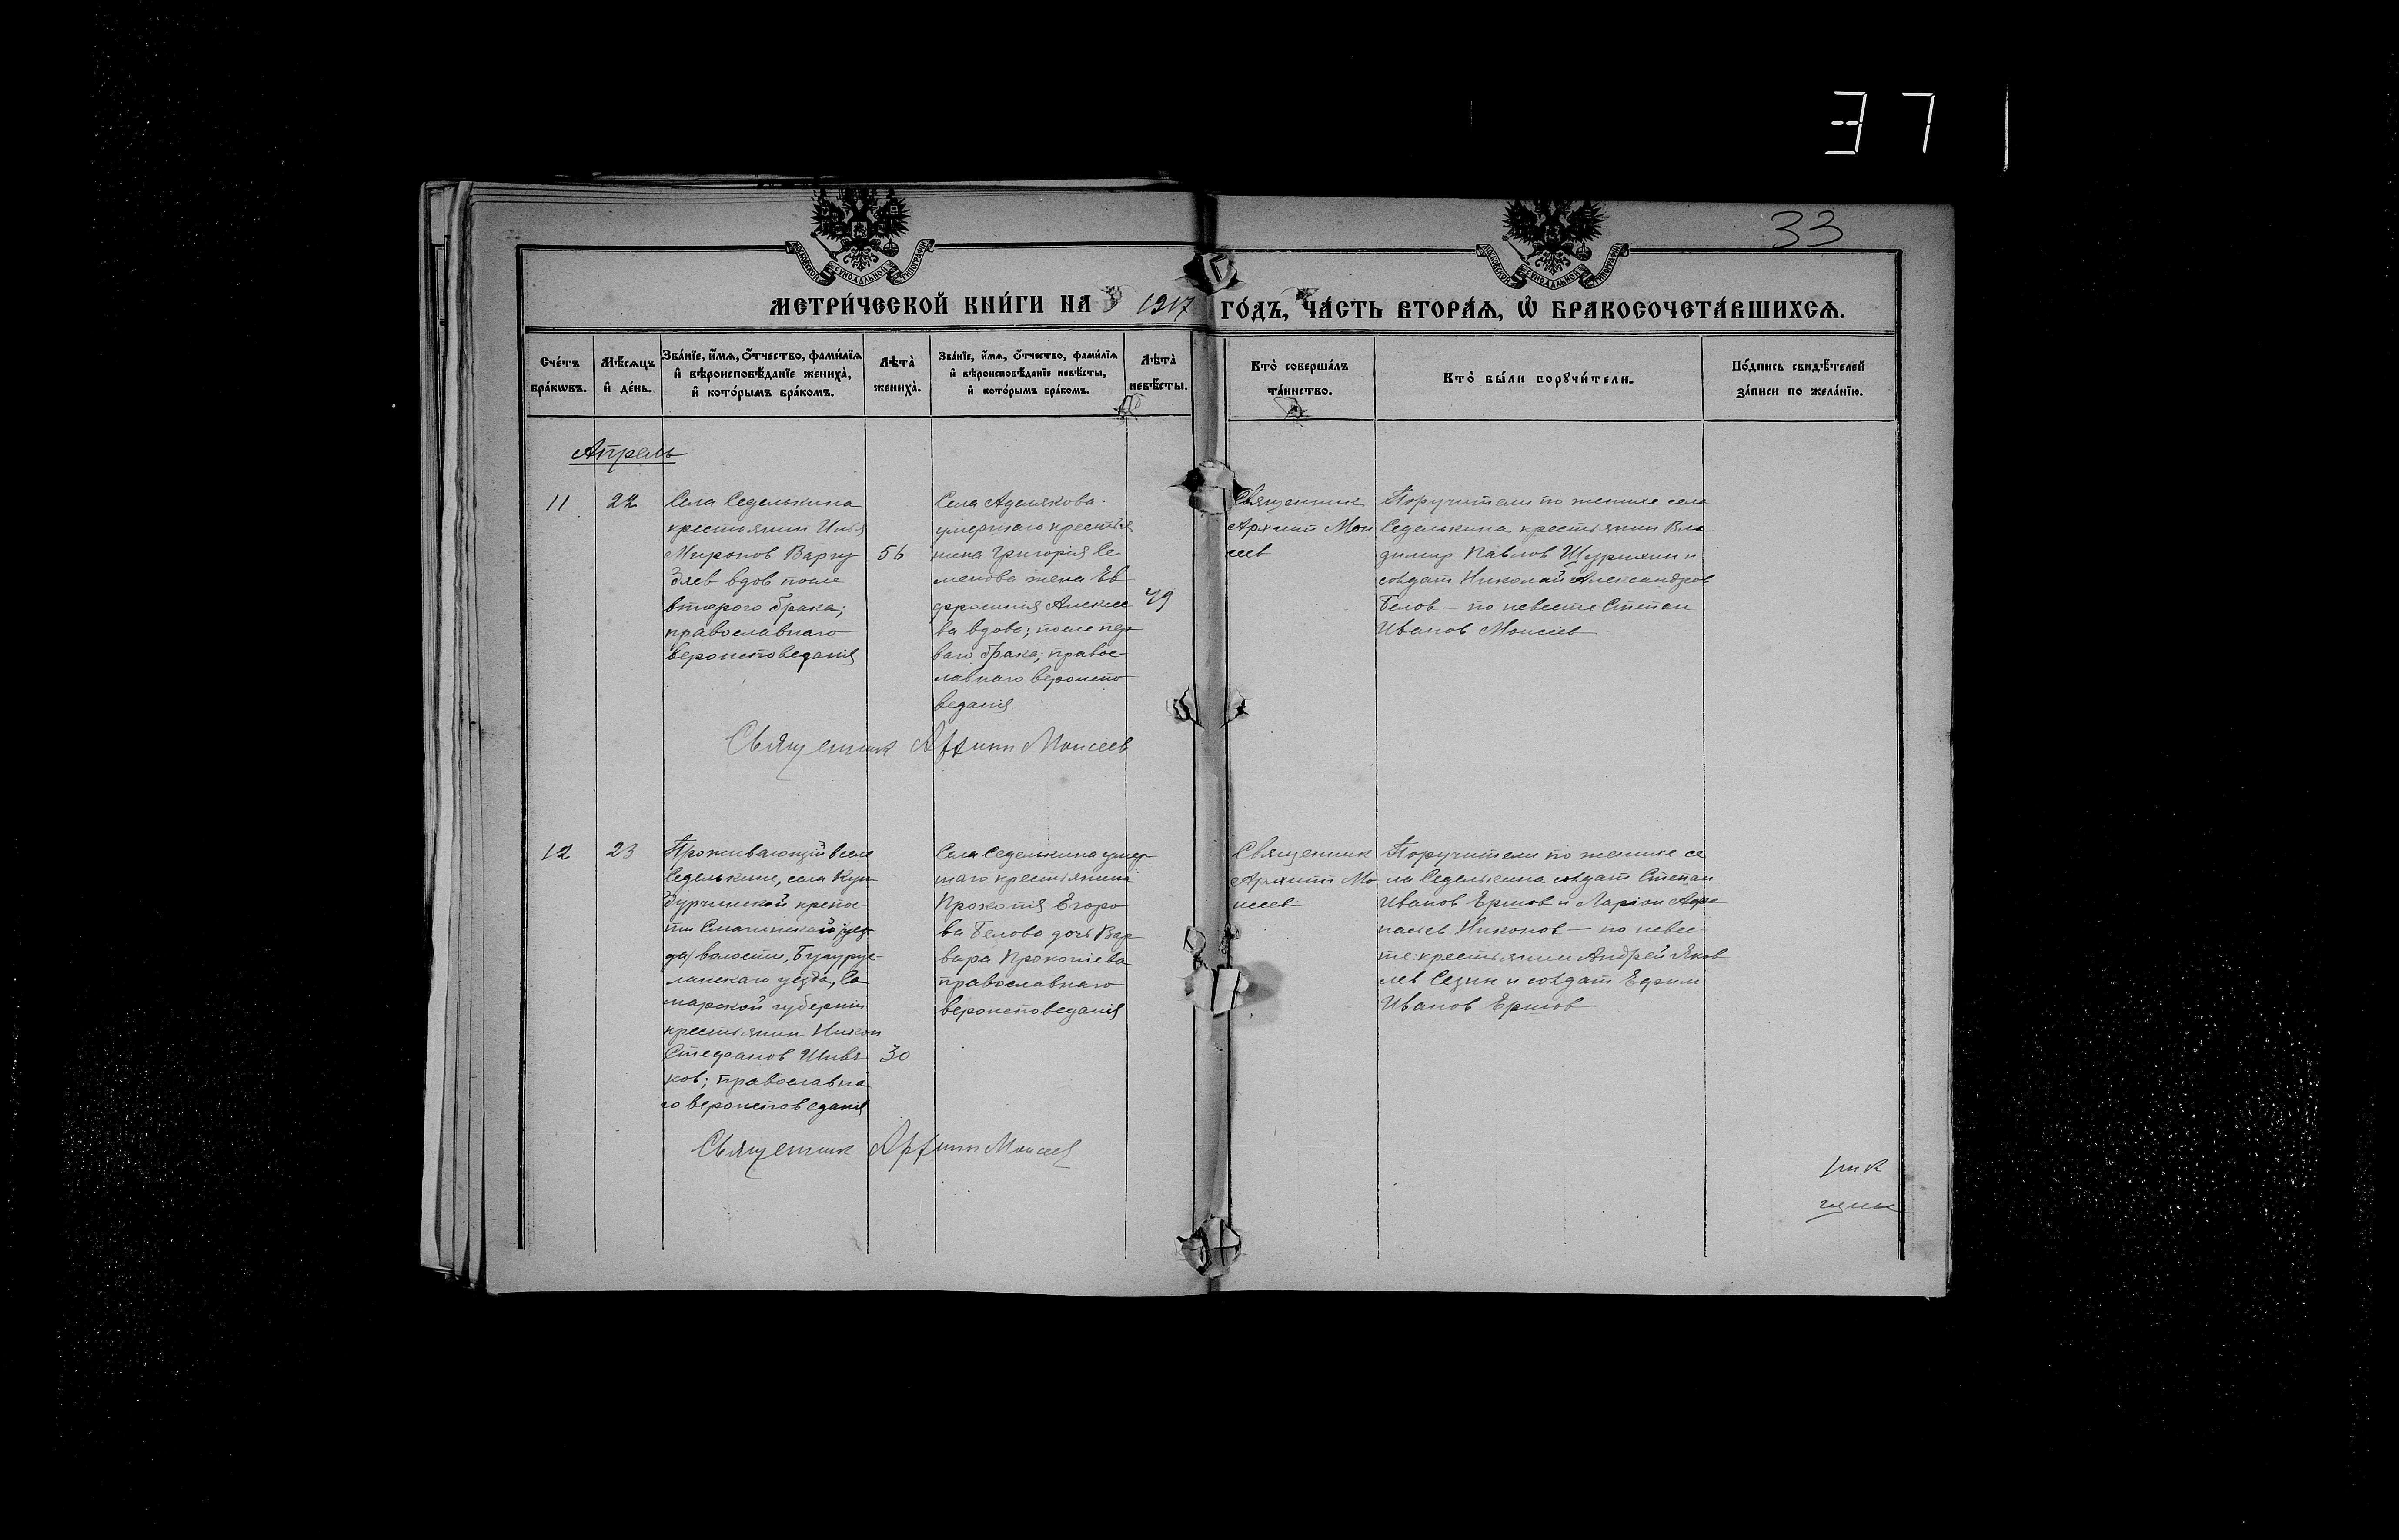 37
33
МОСКОВСКОЙ СѴНОДАЛЬНОЙ ТИПОГРАФІИ
МОСКОВСКОЙ СѴНОДАЛЬНОЙ ТИПОГРАФІИ
МЕТРИ́ЧЕСКОЙ КНИ́ГИ НА 1917 ГО́ДЪ, ЧА́СТЬ ВТОРА́Ѧ, Ѽ БРАКОСОЧЕТА́ВШИХСѦ.
Сче́тъ бра́кѡвъ.
Мѣ́сѧцъ и҆ де́нь.
Зва́нїе, и҆́мѧ, ѻ҆́тчество, фами́лїѧ и҆ вѣроисповѣ́данїе жениха̀, и҆ кото́рымъ бра́комъ.
Лѣта̀ жениха̀.
Зва́нїе, и҆́мѧ, ѻ҆́тчество, фами́лїѧ и҆ вѣроисповѣ́данїе невѣ́сты, и҆ кото́рымъ бра́комъ.
Лѣта̀ невѣ́сты.
Кто̀ соверша́лъ та́инство.
Кто̀ бы́ли порꙋчи́тели.
По́дпись свидѣ́телей за́писи по жела́нїю.
Апрель
11
22
Села Седелькина
крестьянин Илья
Миронов Варгу
зяев вдов после
второго брака;
православнаго
вероисповедания
56
Села Аделякова
умершаго крестья
нина Григория Се
менова жена Ев
фросиния Алексее
ва вдова; после пер
ваго брака; правос
лавнаго вероиспо
ведания
49
Священник
Архипп Мои
сеев
Поручители по женихе села
Седелькина крестьянин Вла
димир Павлов Щуряхин и
солдат Николай Александров
Белов — по невесте Степан
Иванов Моисеев
Священник Архипп Моисеев
12
23
Проживающий в селе
Седелькине, села
крепос
ти
волости, Бугурус
ланскаго уезда, Са
марской губернии
крестьянин Никон
Стефанов
ков; православна
го вероисповедания
30
Села Седелькина умер
шаго крестьянина
Прокопия Егоро
ва Белова дочь Вар
вара Прокопиева
православнаго
вероисповедания
Священник
Архипп Мо
исеев
Поручители по женихе се
ла Седелькина солдат Степан
Иванов Ершов и Ларион Афа
насьев Никонов — по невес
те: крестьянин Андрей Яков
лев Сезин и солдат Ефим
Иванов Ершов
Священник Архипп Моисеев